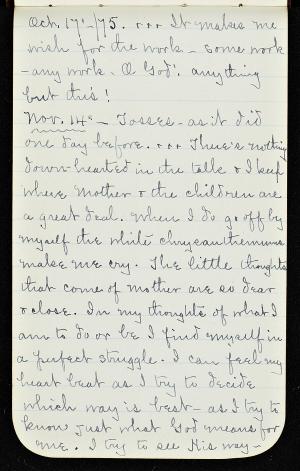 Oct. 17-/75. ... It makes me
wish for the work - some work
- any work. O God! anything
but this!
Nov. 14 - Tosses - as it did
one day before. ... There's nothing
down-hearted in the talk & I keep
where Mother & the children are
a great deal. When I do go off by
myself the white chrysanthemums
make me cry. The little thoughts
that come of mother are so dear
& close. In my thoughts of what I
am to do or be I find myself in
a perfect struggle. I can feel my
heart beat as I try to decide
which way is best - as I try to
know just what God means for
me. I try to see His way -